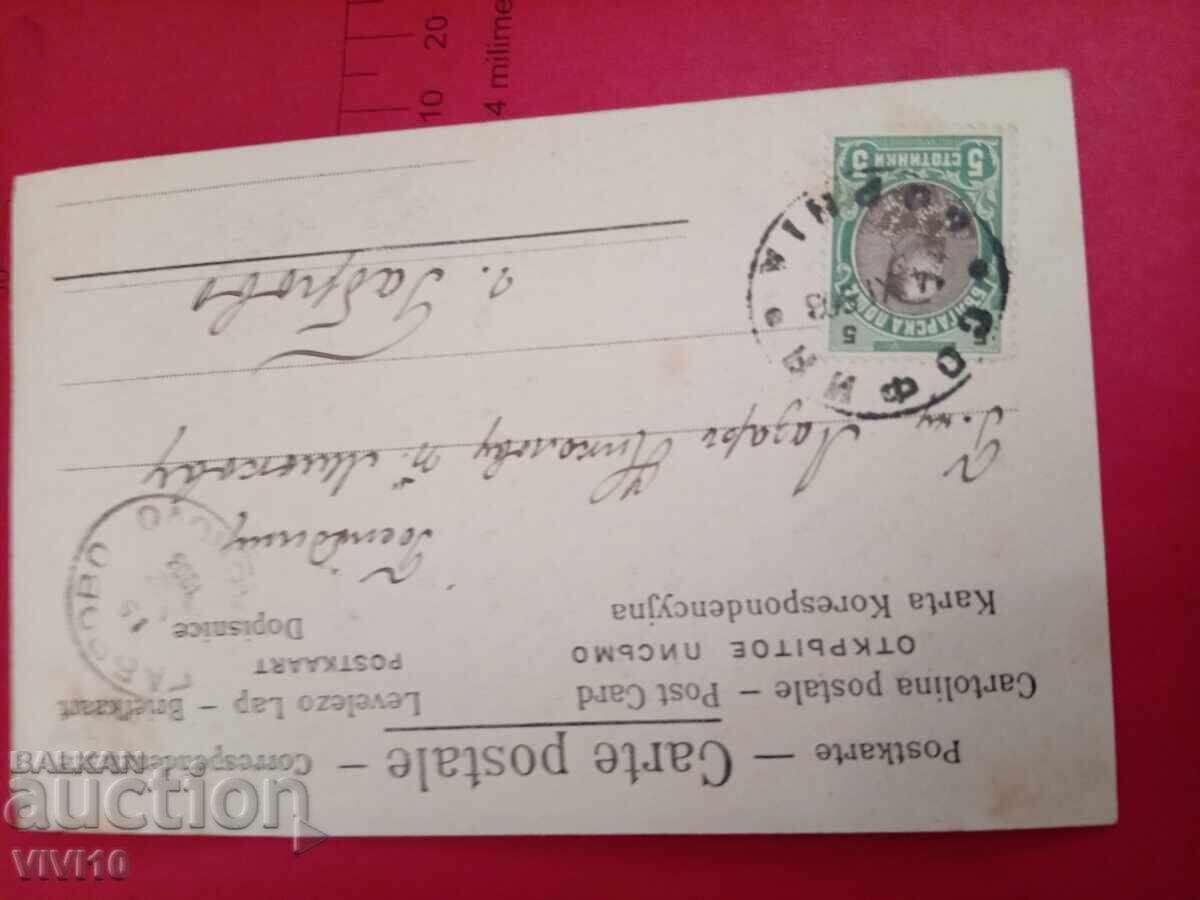 10 20
4 milime
Postkarte — Carte postale — Correspondenz-
Cartolina postale – Post Card
Levelezo Lap – Briefkaart
ОТКРЫТОЕ ПИСЬМО
POSTKAART
Karta Korespondencyjna
Dopisnice
Г-ну Лазаръ Николову
г. Габрово
5 5
СТОТИНКИ
БЪЛГАРСКА ПОЩА
5 5
СОФИЯ
XI
BALKAN
auction
VIVI10